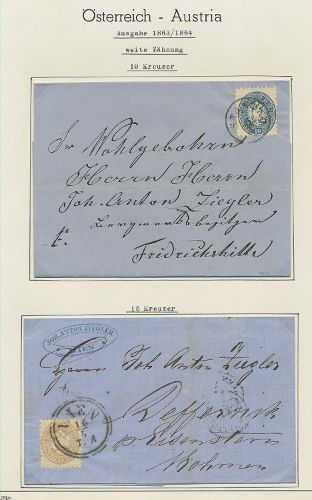 Österreich - Austria
Ausgabe 1863/1864
weite Zähnung
10 Kreuzer
Sr Wohlgebohren
Herrn Herrn
Joh. Anton Ziegler
Bergwerksbesitzer
Fridrichshütte
15 Kreuzer
JOH. ANTON ZIEGLER
WIEN
Herrn Joh Anton Ziegler
WIEN
16
Deffernik
pr Eisenstein
Böhmen